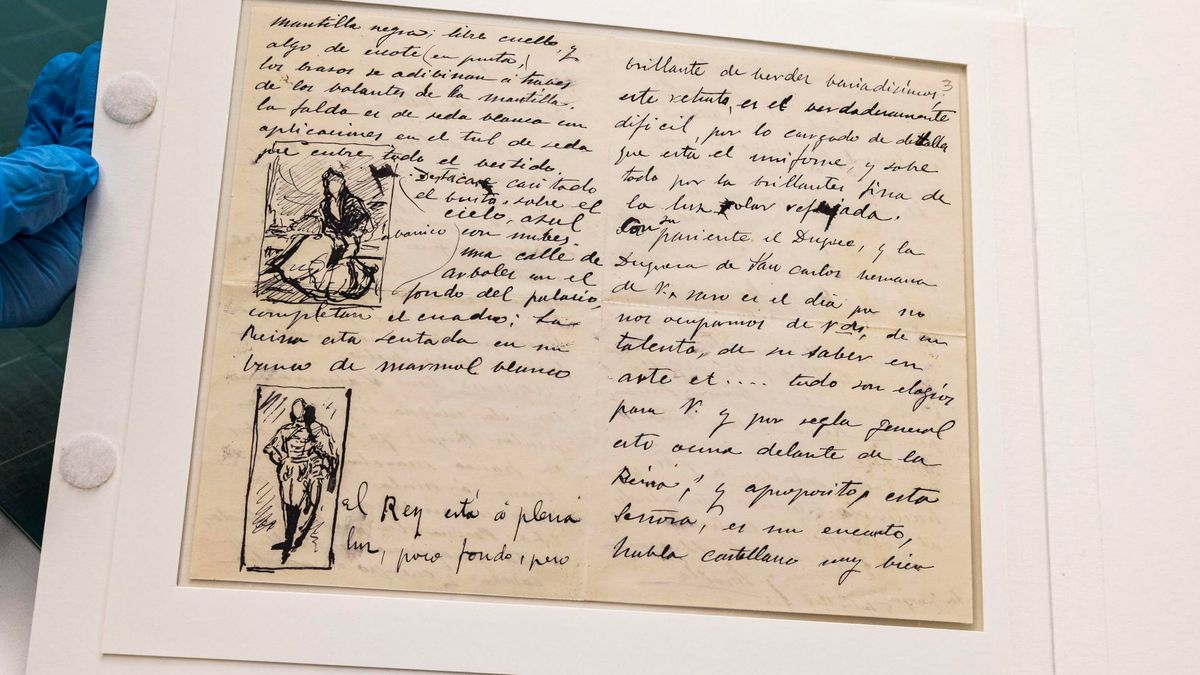 mantilla negra; libre cuello, y
algo de escote (en punta,
los brasos se adibinan á traves
de los volantes de la mantilla.
la falda es de seda blanca con
aplicaciones en el tul de seda
que cubre todo el vestido.
Destacase casi todo
el busto, sobre el
cielo, azul
abanico
con nubes.
una calle de
arboles con el
fondo del palacio,
completan el cuadro; La
Reina esta sentada en un
banco de marmol blanco
el Rey está á plena
luz, poco fondo, pero
3
brillante de verdes variadisimos,
este retrato, es el verdaderamente
dificil, por lo cargado de detalles
que esta el uniforme, y sobre
todo por la brillantes fina de
la luz solar reflejada.
Con su pariente el Duque, y la
Duquesa de San Carlos hermana
de V. raro es el dia que no
nos ocupamos de Vds, de su
talento, de su saber en
arte et .... todo son elogios
para V. y por regla general
esto ocurre delante de la
Reina, y aproposito, esta
Señora, es un encanto,
habla castellano muy bien